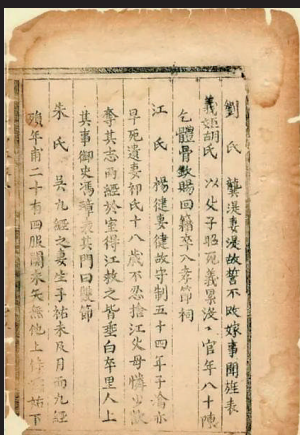 劉氏 龔湜妻湜故誓不改嫁事聞旌表
義姑胡氏 以处子 義累 官年八十陳
乞體骨 賜回籍卒入孝節祠
江氏 楊健妻健故守制五十四年子 亦
早死遺妻 氏十八歲不忍捨江 母憐
奪其志 經於室得江救之皆 白卒里人上
其事御史馮 表其門曰 節
朱氏 吳九經之妻生子祐未及月而九經
殞年甫二十有四服闋 矢無他上 祐下